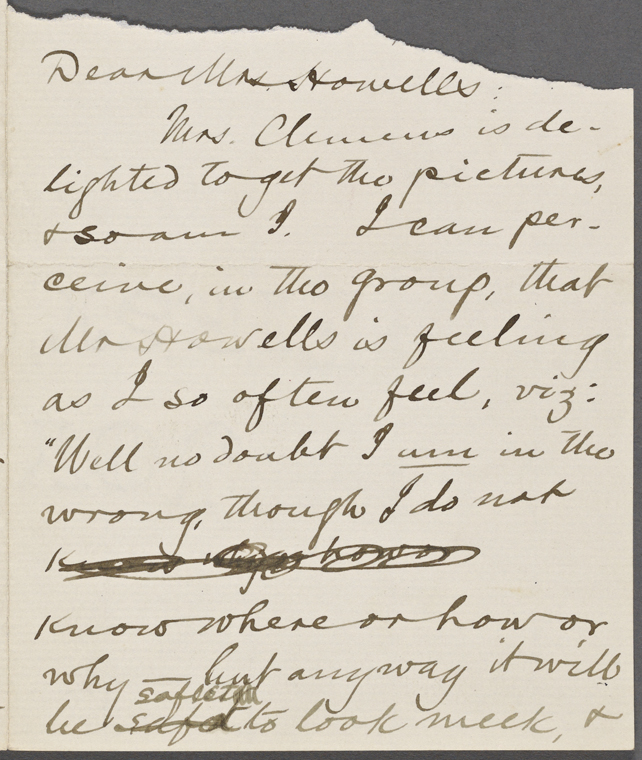 Dear Mrs. Howells:
Mrs. Clemens is de-
lighted to get the pictures,
& so am I. I can per-
ceive, in the group, that
Mr Howells is feeling
as I so often feel, viz:
"Well no doubt I am in the
wrong, though I do not
know how or
know where or how or
why — but anyway it will
safest
be to look meek, &